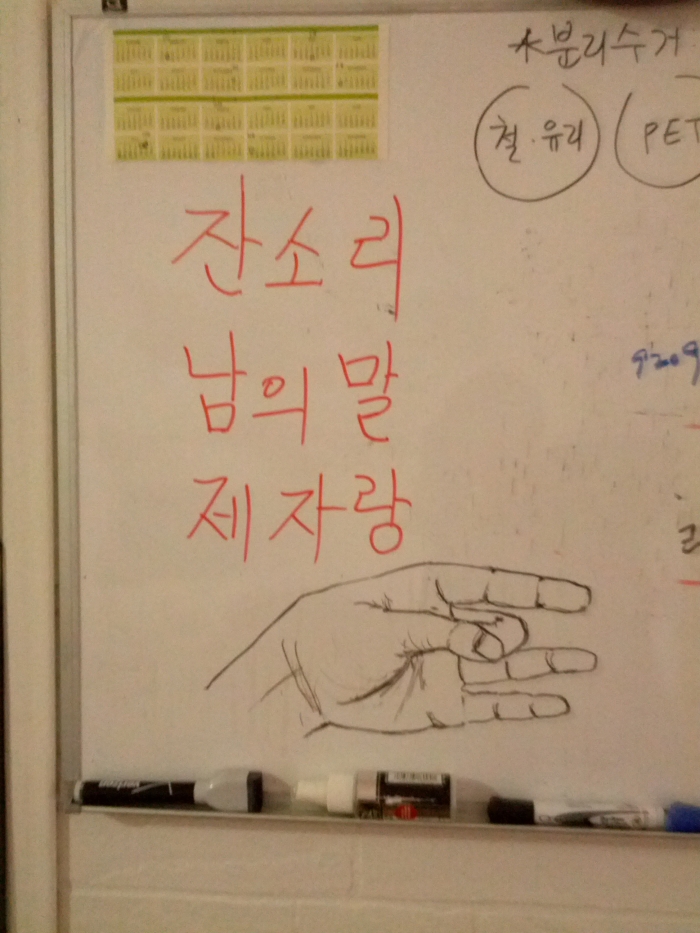 *분리수거
철·유리
PET
잔소리
남의말
제자랑